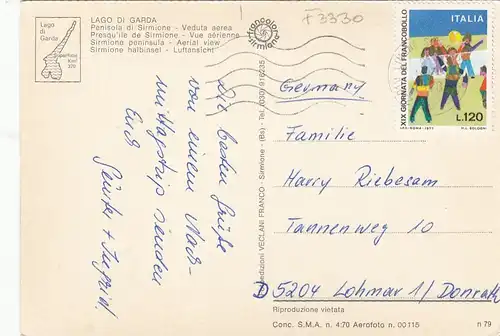 LAGO DI GARDA
Penisola di Sirmione - Veduta aerea
Presqu'ile de Sirmione - Vue aérienne
Sirmione peninsula - Aerial view
Sirmione halbinsel - Luftansicht
Lago
di
Garda
F3330
francolor
sirmione
XIX GIORNATA DEL FRANCOBOLLO
ITALIA
L.120
Die besten Grüße
von einem Nach-
mittagstrip senden
Euch
Günter + Ingrid
Edizioni VECLANI FRANCO - Sirmione - (Bs) - Tel. (030) 916235
Germany
Familie
Harry Riebesam
Tannenweg 10
D 5204 Lohmar 1/ Donrath
Riproduzione vietata
Conc. S.M.A. n. 4/70 Aerofoto n. 00115
n 79